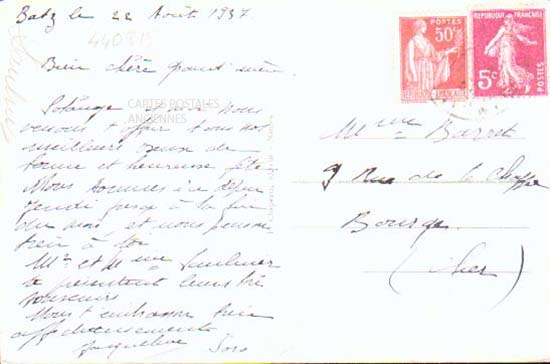 Batz le 22 Août 1937
440813
Bien chère grand'mère.
Solange et moi nous
venons t'offrir tous nos
meilleurs voeux de
bonne et heureuse fête.
Nous sommes ici depuis
jeudi jusqu'à la fin
du mois, et nous pensons
bien à toi.
Mr et Mme
te présentent leurs
souvenirs
Nous t'embrassons bien
affectueusement
Jacqueline Soso
CARTES POSTALES
ANCIENNES
POSTES
50c
RÉPUBLIQUE FRANÇAISE
RÉPUBLIQUE FRANÇAISE
5c
POSTES
Mme Barret
9 Rue de la Chappe
Bourges
(Cher)